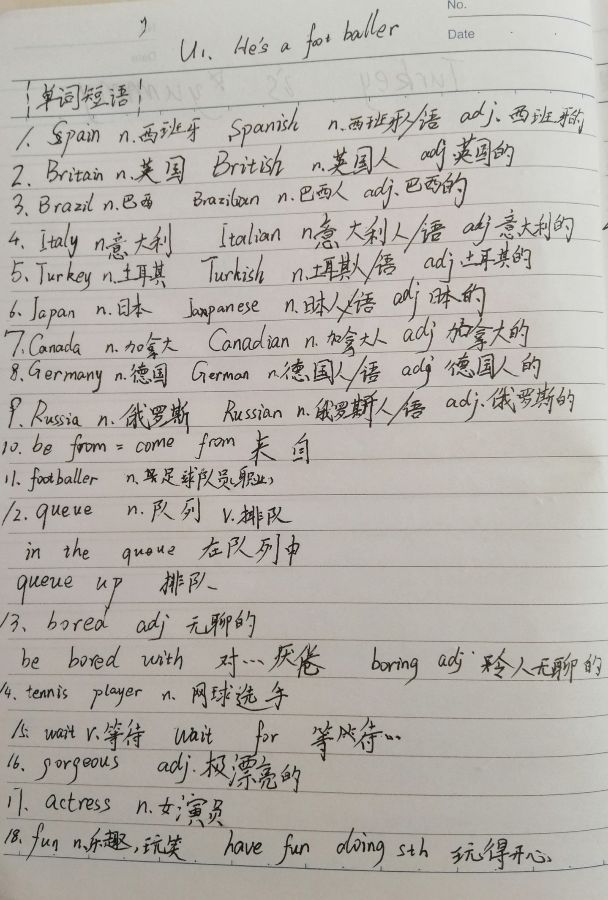 No.
Date
U1. He's a foot baller
单词短语
1. Spain n.西班牙 Spanish n.西班牙人/语 adj.西班牙的
2. Britain n.英国 British n.英国人 adj英国的
3. Brazil n.巴西 Brazilian n.巴西人 adj.巴西的
4. Italy n意大利 Italian n意大利人/语 adj意大利的
5. Turkey n.土耳其 Turkish n.土耳其人/语 adj.土耳其的
6. Japan n.日本 Janpanese n.日本人/语 adj日本的
7. Canada n.加拿大 Canadian n.加拿大人 adj加拿大的
8. Germany n.德国 German n.德国人/语 adj德国人的
9. Russia n.俄罗斯 Russian n.俄罗斯人/语 adj.俄罗斯的
10. be from = come from 来自
11. footballer n.足球队员(职业)
12. queue n.队列 v.排队
in the queue 在队列中
queue up 排队
13. bored adj 无聊的
be bored with 对…厌倦 boring adj 令人无聊的
14. tennis player n.网球选手
15. wait v.等待 wait for 等待…
16. gorgeous adj.极漂亮的
17. actress n.女演员
18. fun n.乐趣,玩笑 have fun doing sth 玩得开心